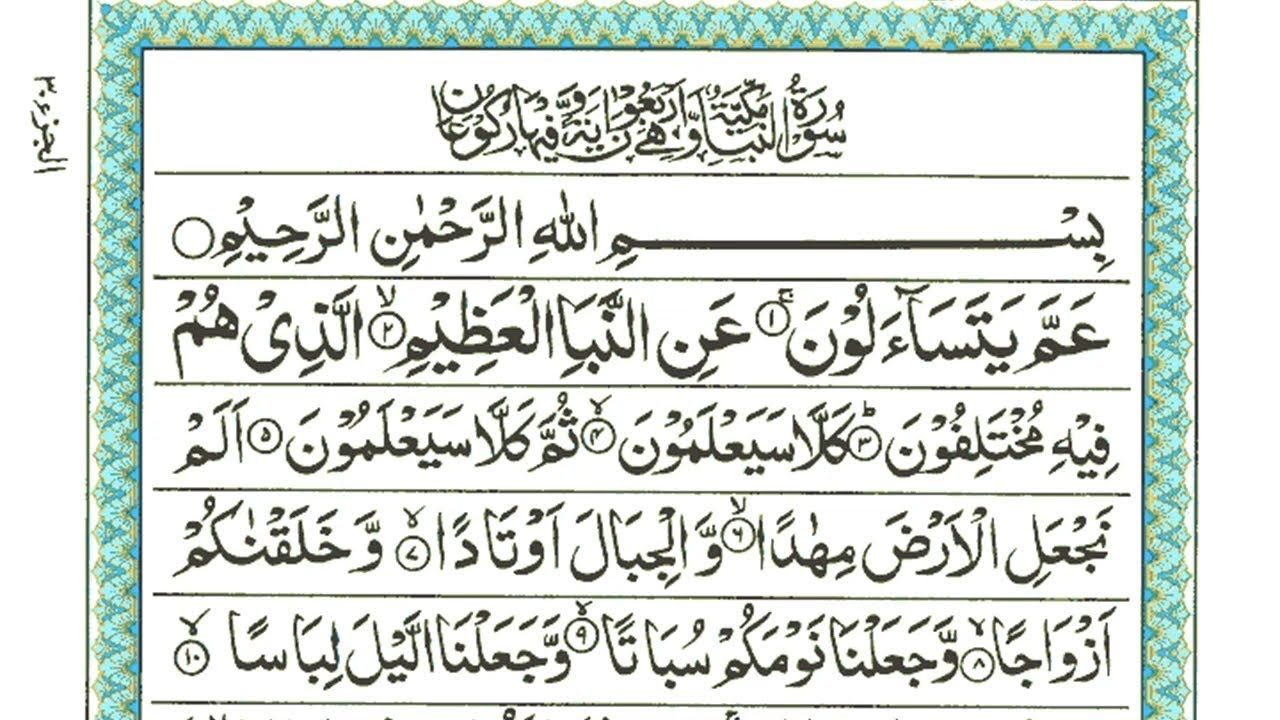 سُوْرَةُ النَّبَاِ مَكِّيَّةٌ وَّهِيَ اَرْبَعُوْنَ اٰيَةً وَّفِيْهَا رُكُوْعَانِ
الجزء ٣٠
بِسْــــــمِ اللهِ الرَّحْمٰنِ الرَّحِيْمِ
عَمَّ يَتَسَآءَلُوْنَ ۚ﴿۱﴾ عَنِ النَّبَاِ الْعَظِيْمِ ۙ﴿۲﴾ الَّذِىْ هُمْ
فِيْهِ مُخْتَلِفُوْنَ ؕ﴿۳﴾ كَلَّا سَيَعْلَمُوْنَ ۙ﴿۴﴾ ثُمَّ كَلَّا سَيَعْلَمُوْنَ ﴿۵﴾ اَلَمْ
نَجْعَلِ الْاَرْضَ مِهٰدًا ۙ﴿۶﴾ وَّ الْجِبَالَ اَوْتَادًا ۙ﴿۷﴾ وَّ خَلَقْنٰكُمْ
اَزْوَاجًا ۙ﴿۸﴾ وَّجَعَلْنَا نَوْمَكُمْ سُبَاتًا ۙ﴿۹﴾ وَّجَعَلْنَا الَّيْلَ لِبَاسًا ۙ﴿۱۰﴾